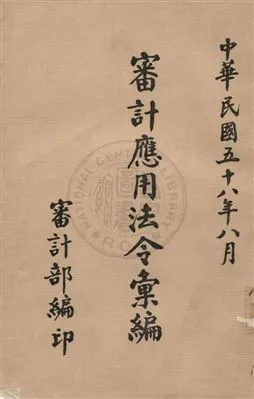 中華民國五十八年八月
審計應用法令彙編
審計部編印